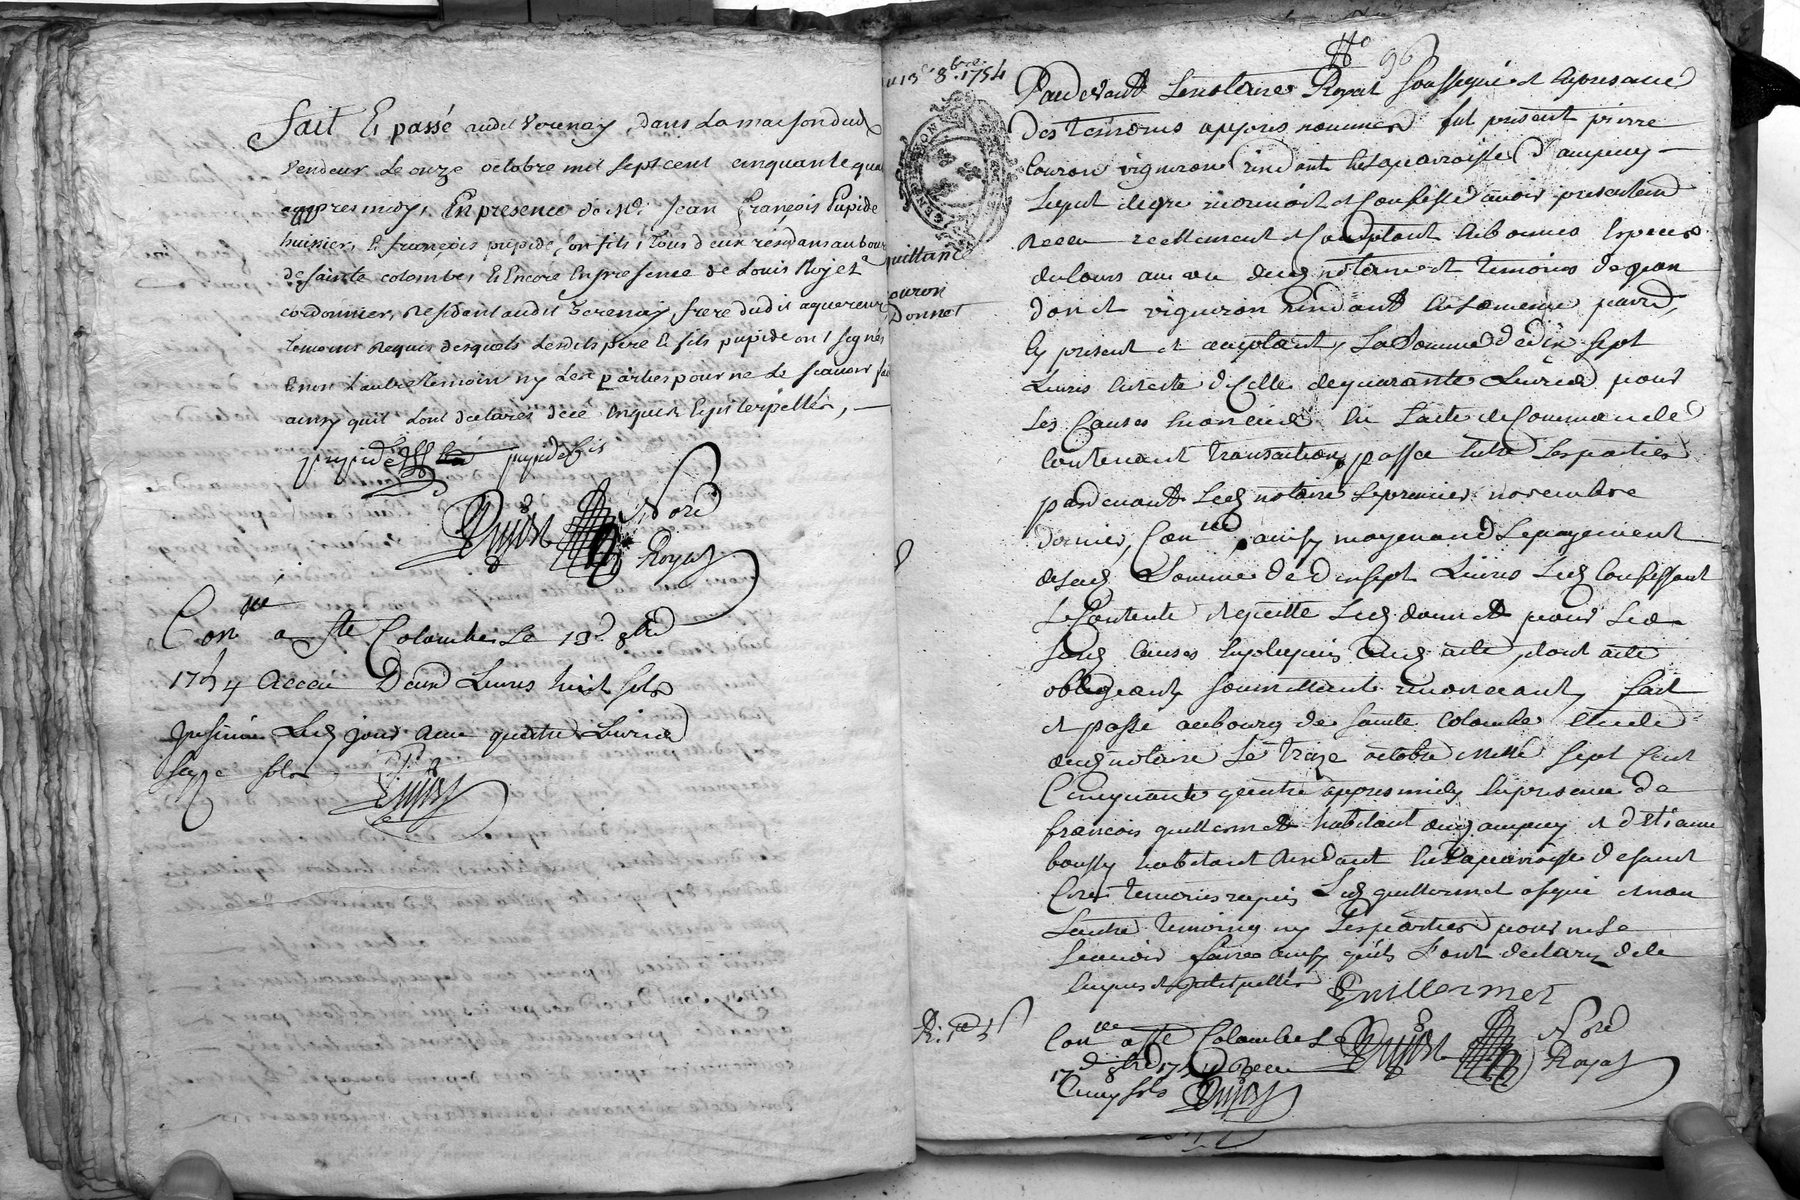 fait Et passé audit Verenay, dans La maison dud
vendeur Le onze octobre mil Sept cent cinquante qua
appres midy, En presence de Mr Jean françois Pupide
huissier, & françois pupide son fils, tous deux residans au bour
de Sainte colombe, & Encore En presence de Louis Rojet
cordonnier, Resident audit Verenay, frere dudit aquereur,
temoins Requis desquels Lesdits père & fils pupide ont signés
& non L'autre temoin ny Les parties pour ne Le scavoir fai
ainsy quil Lont declarés de ce Enquis & interpellés, —
pupide pupide fils
Nore
Royal
Con lle a Ste Colombe Le 13e 8bre
1754 Receu Deux Livres huit sols
Insinué Led jour Receu quatre Livres
Seize sols
No 96
du 13e 8bre 1754
Pardevant Le notaire Royal Soussigné et en presance
des temoins appres nommés fut present pierre
couron vigneron residant en La paroisse d'ampuy —
Lequel de gré reconnoit et Confesse avoir presentement
Receu reellement et Comptant en bonnes Especes
du Cours au veu dud notaire et temoins de jean
donet vigneron residant en La meme paroisse,
Cy present et acceptant, La Somme de dix Sept
Livres en reste de Celle de quarante Livres pour
Les Causes enoncées En L'acte de Commande
Contenant transaction passé Entre Les parties
pardevant Led notaire Le premier novembre
dernier, Con lle, ainsy moyenant Le payement
de lad Somme de dix sept Livres Led Confessant
Se Contente et quitte Led donnet pour Les
susd Causes Expliquées aud acte, dont acte
obligeant, Soumettant renonceant, fait
et passé au bourg de Sainte Colombe Etude
dud notaire Le treze octobre Mille Sept Cent
Cinquante quatre appres midy En presance de
francois guillermet habitant aud ampuy et d'Etienne
boussy habitant residant En La paroisse de saint
Cire temoins requis Led guillermet a signé et non
L'autre temoing ny Les parties pour ne Le
Scavoir faire ainsy quils L'ont declaré de ce
Enquis et interpellés
Guillermet
quittance
couron
Donnet
Con lle a Ste Colombe Le
17e 8bre 1754 Receu
Cinq sols
Nore
Royal